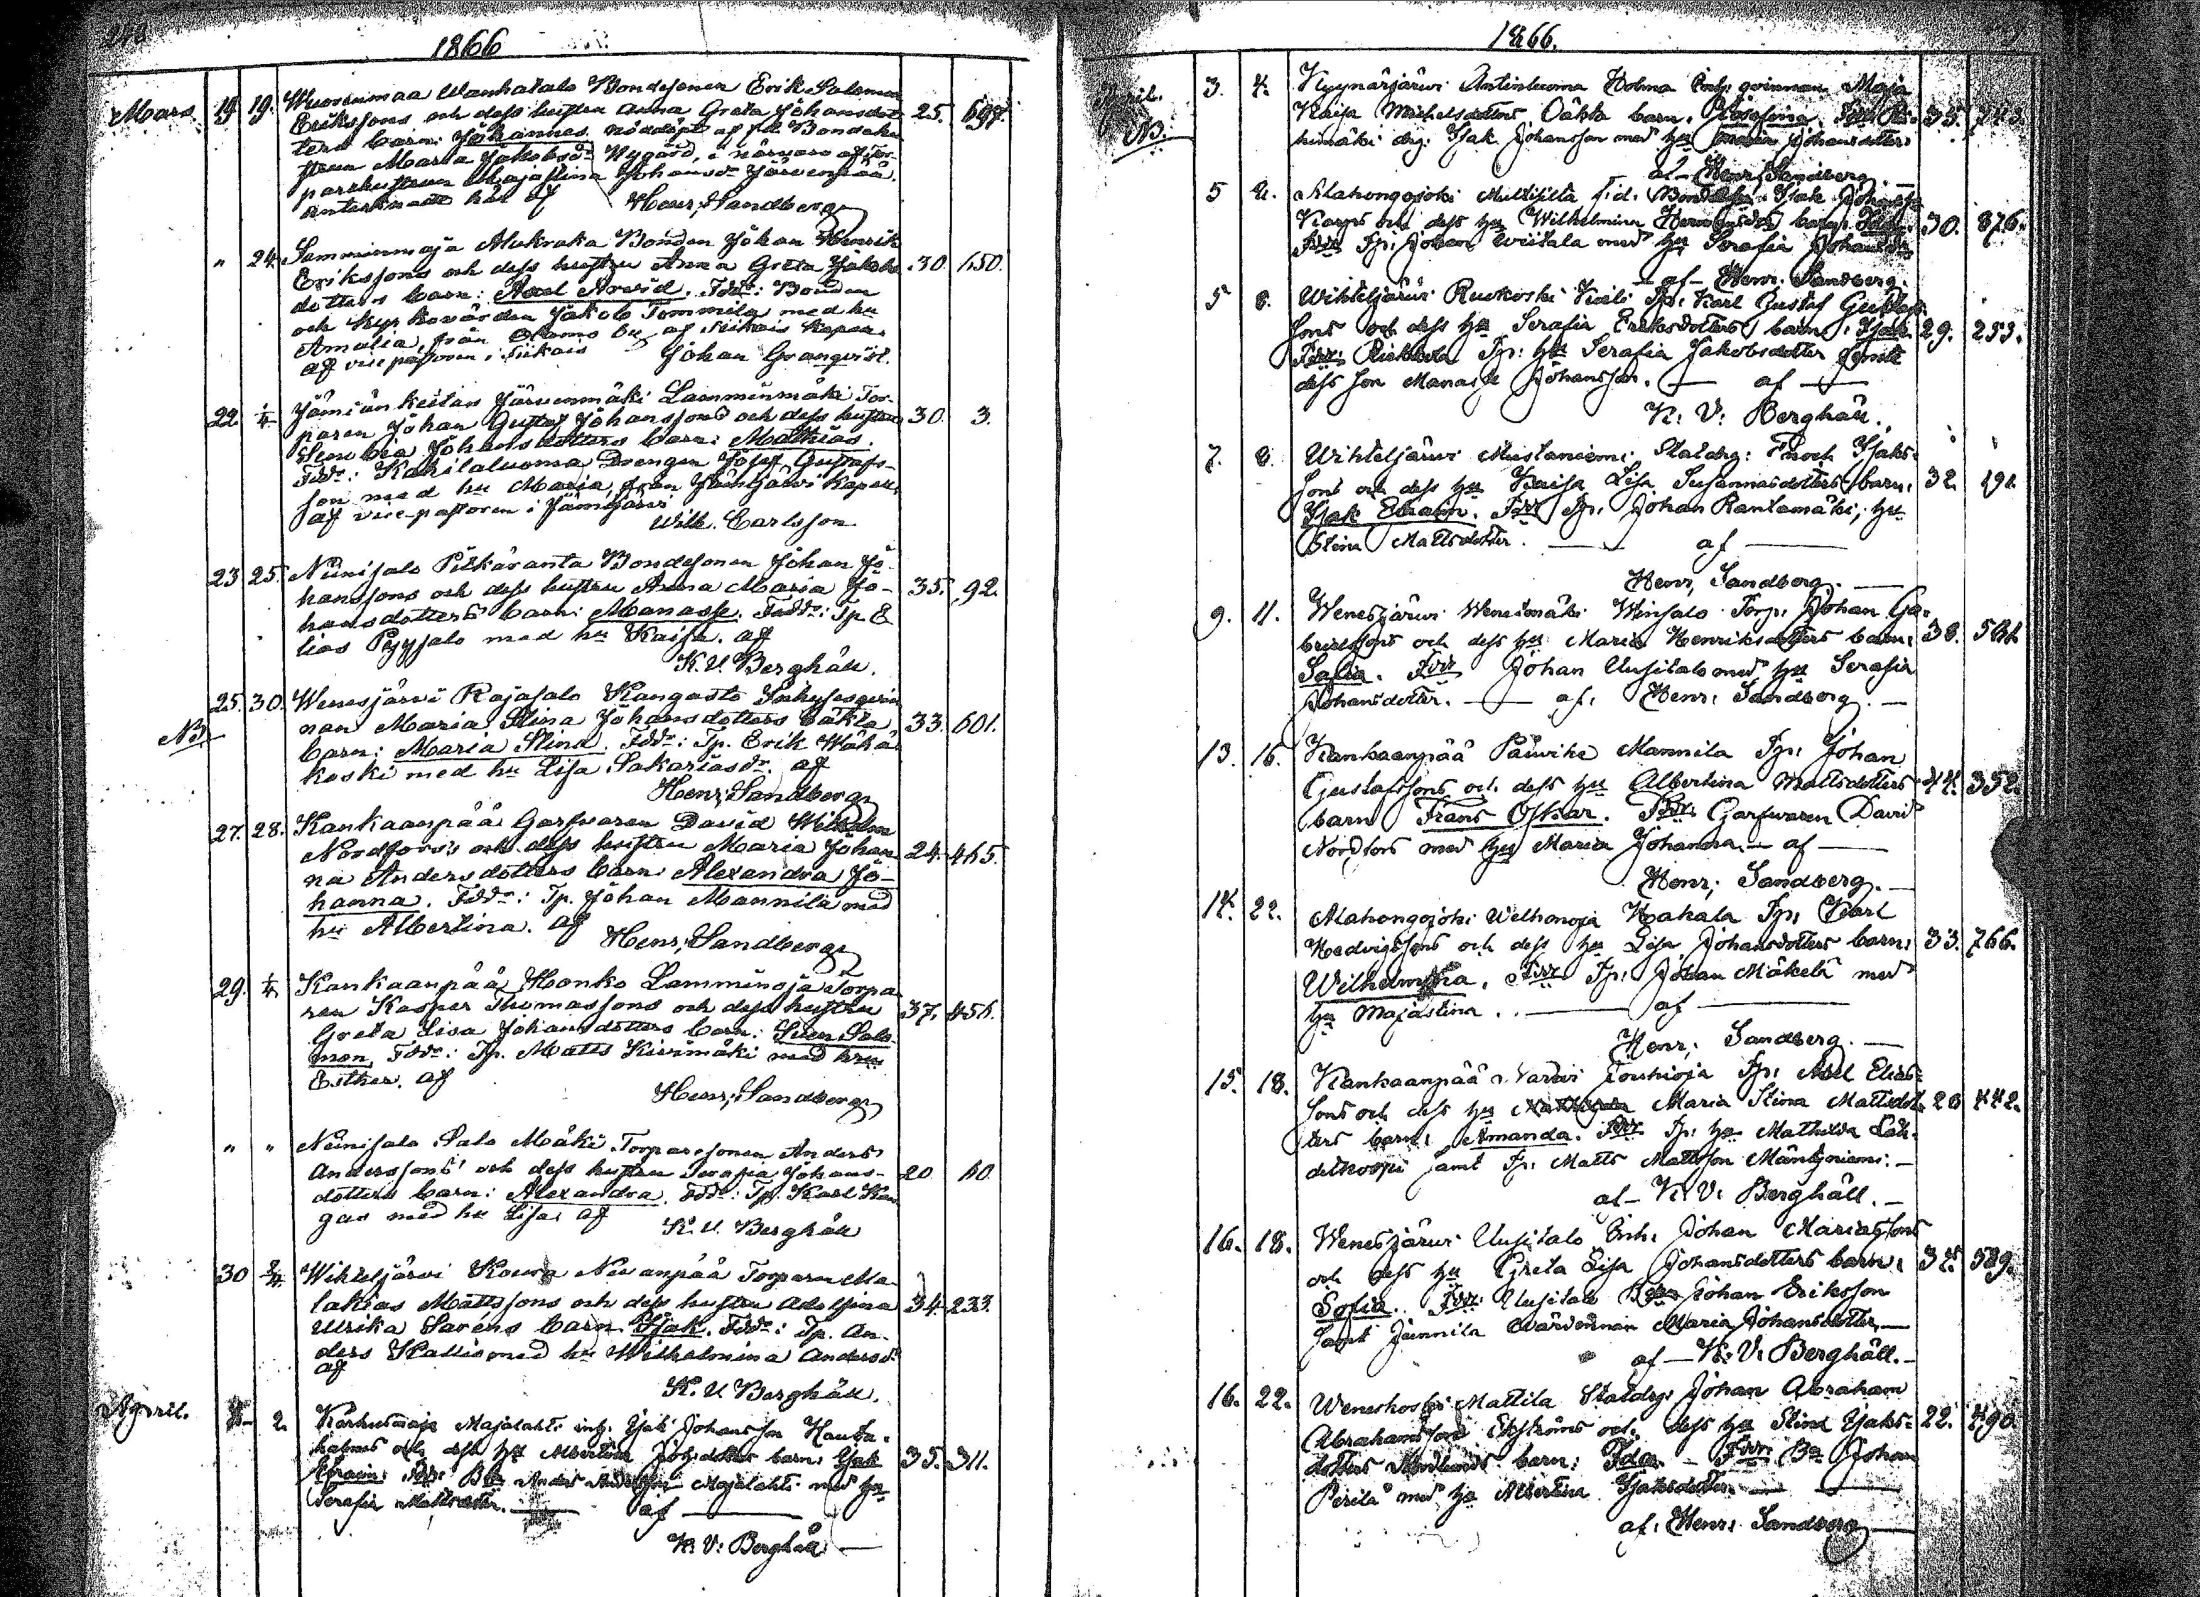 1866
Mars 19 19. Wuorenmaa Wanhatalo Bondesonen Erik Salomon
Erikssons och dess hustru Anna Greta Johansdot 25. 697.
ters barn: Johannes nöddöpt af f.d. Bondehu
strun Maria Jakobsdr Nygård, i närvaro af Tor-
parehustrun Majastina Johansdr Järvenpää.
antecknadt här af Henr; Sandberg
" 24. Samminmaja Alukraka Bonden Johan Henrik
Erikssons och dess hustru Anna Greta Jakobs 30 150.
dotters barn: Axel Arvid. Fddr: Bonden
och Kyrkovärden Jakob Tommila med hu
Amalia, från Otamo by af Siikais Kapell
af vicepastoren i Siikais Johan Granqvist.
22. 1/4 Jämiänkeitas Järvenmäki Lamminmäki Tor-
paren Johan Gustaf Johanssons och dess hustru 30. 3.
Johansdotters barn: Mathias.
Fddr: Kahilaluoma Drengen Josef Gustafs-
son med hu Maria, från Jämijärvi Kapell
af vice-pastoren i Jämijärvi
Wilh. Carlsson
23 25. Niinisalo Pitkäranta Bondesonen Johan Jo-
hanssons och dess hustru Anna Maria Jo- 35. 92.
hansdotters barn: Manasse. Fddr: Tp. E
lias Pyysalo med hu Kaisa. af
K. V. Berghäll.
25. 30. Wenesjärvi Rajasalo Kangasto Inhysesqvin
NB nan Maria Stina Johansdotters oäkta 33. 601.
barn: Maria Stina. Fddr: Tp. Erik Wähä
koski med hu Lisa Sakariasdr. af
Henr; Sandberg
27. 28. Kankaanpää Garfvaren David Wilhelm
Nordfors's och dess hustru Maria Johan 24. 465.
na Andersdotters barn: Alexandra Jo-
hanna. Fddr: Tp. Johan Mannila med
hu Albertina. af
Henr; Sandberg
29. 1/4 Kankaanpää Honko Lamminoja Torpa
ren Kasper Thomassons och dess hustru 37. 456.
Greta Lisa Johansdotters barn: Sven Salo-
mon, Fddr: Tp. Matts Kivimäki med hu
Esther. af
Henr; Sandberg
" " Niinisalo Salo Mäki Torparesonen Anders
Anderssons' och dess hustru Serafia Johans- 20 60
dotters barn: Alexandra. Fddr: Tp. Karl Kan
gas med hu Lisa. af K. V. Berghäll
30 2/4 Wihteljärvi Koura Nevanpää Torparen Ma
lakias Mattssons och dess hustru Adolfina 34. 233.
Ulrika Saréns barn Isak. Fddr: Tp. An-
ders Kallio med hu Wilhelmina Andersdr
af
K. V. Berghäll.
April. 2. Karhusmaja Majalahti inh. Isak Johansson Hauta-
holms och dess hu Albertina Johsdotters barn: Isak 35. 311.
Efraim. Fddr: Bn Anders Andersson Majalahti med hu
Serafia Mattsdotter. — af —
K. V. Berghäll —
1866.
April. 3. 4. Kyynärjärvi Antinluoma Holma Inh. qvinnan Maja
NB. Kaisa Michelsdotters Oäkta barn, Josefina. Fddr 35. 243.
himäki drg. Isak Johansson med hu Maria Johansdotter.
af — Henr; Sandberg. —
5 Alahongojoki f.d. Isak Johansson
Karps och dess hu Wilhelmina barn. 30. 876.
Fddr Tp. Johan Wiitala med hu Serafia Johansdr
— af — Henr. Sandberg.
5 8. Wihteljärvi Ruokoski Kivelä Tp. Karl Gustaf Gustafs-
sons och dess hu Serafia Eriksdotters barn, Isak 29. 253.
Fddr: Tp: hu Serafia Jakobsdotter samt
dess son Manasse Johansson. — af —
K. V. Berghäll.
7. 8. Wihteljärvi Mustaniemi Statdrg: Enoch Isaks-
sons och dess hu Kaisa Lisa Susannasdotters barn, 32. 191.
Isak Efraim. Fddr Tp. Johan Rantamäki, hu
Stina Mattsdotter. — af —
Henr, Sandberg. —
9. 11. Wenesjärvi Wenesmäki Winsalo Torp. Johan Ga-
brielssons och dess hu Maria Henriksdotters barn, 38.
Safia. Fddr Johan Uusitalo med hu Serafia
Johansdotter. — af. Henr: Sandberg. —
13. 16. Kankaanpää Päiwike Mannila Tp: Johan
Gustafssons och dess hu Albertina Mattsdotters 44. 352.
barn Frans Oskar. Fddr: Garfwaren David
Nordfors med hu Maria Johanna. — af —
Henr; Sandberg. —
14. 22. Alahongojoki Welhonoja Kahala Tp: Karl
Hedvigssons och dess hu Lisa Johansdotters barn: 33. 766.
Wilhelmina. Fddr Tp: Johan Mäkelä med
hu Majastina. — af —
Henr; Sandberg. —
15. 18. Kankaanpää Narvi Touhioja Tp: Abel Elias-
sons och dess hu Maria Stina Mattsdot- 20 442.
ters barn: Amanda. Fddr Tp: hu Mathilda Läh-
dekorpi samt Tp: Matts Mattsson Mäntyniemi. —
af — K. V: Berghäll. —
16. 18. Wenesjärvi Uusitalo Inh. Johan Mariassons
och dess hu Greta Lisa Johansdotters barn: 32. 589.
Sofia. Fddr: Uusitalo Johan Eriksson
samt Jännilä Värdinnan Maria Johansdotter, —
af — K: V: Berghäll. —
16. 22. Weneskoski Mattila Statdrg: Johan Abraham
Abrahamssons Ekströms och dess hu Stina Isaks- 22. 490.
dotters barn: Ida. — Fddr: Bn Johan
Perila med hu Albertina Isaksdotter. —
af: Henr: Sandberg —